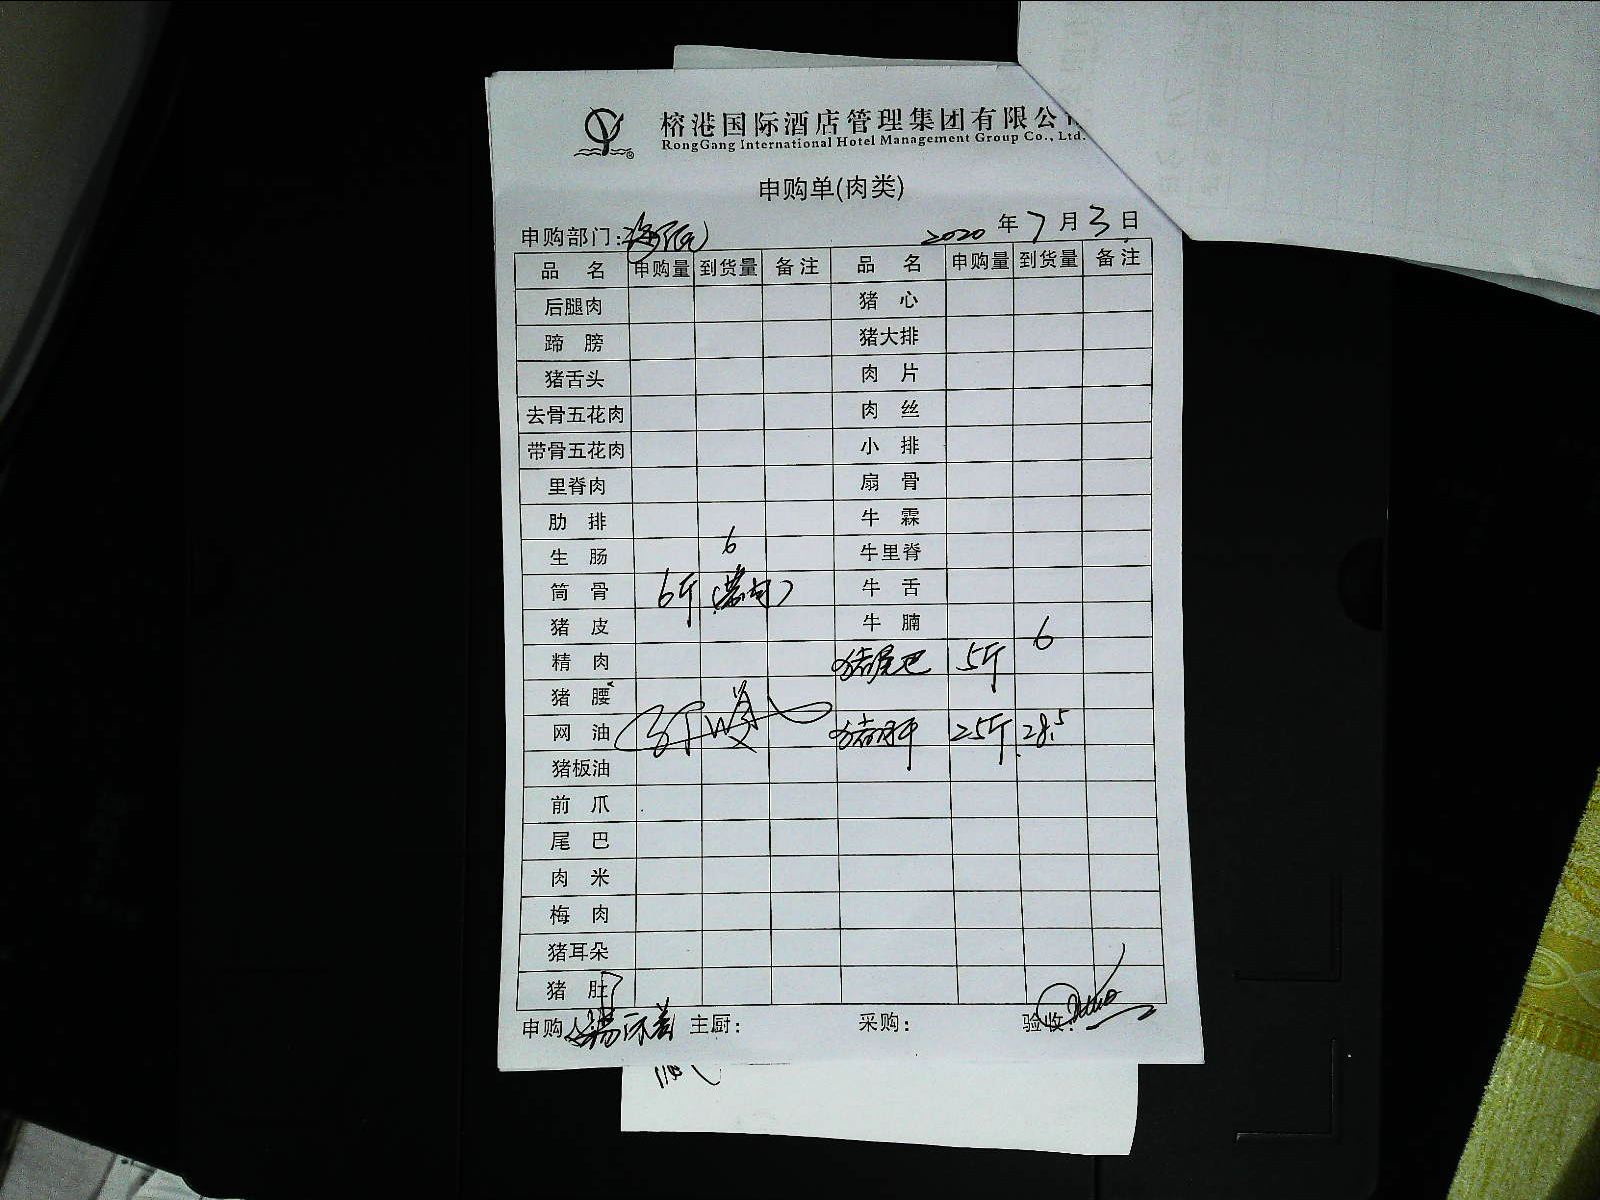 榕港国际酒店管理集团有限公
RongGang International Hotel Management Group Co., Ltd.
申购单(肉类)
申购部门: 2020 年 7 月 3 日
品名 申购量 到货量 备注 品名 申购量 到货量 备注
后腿肉 猪心
蹄膀 猪大排
猪舌头 肉片
去骨五花肉 肉丝
带骨五花肉 小排
里脊肉 扇骨
肋排 牛霖
生肠 6 牛里脊
筒骨 6斤 牛舌
猪皮 牛腩
精肉 猪尾巴 5斤 6
猪腰
网油 猪肝 25斤 28.5
猪板油
前爪
尾巴
肉米
梅肉
猪耳朵
猪肚
申购 主厨: 采购: 验收: